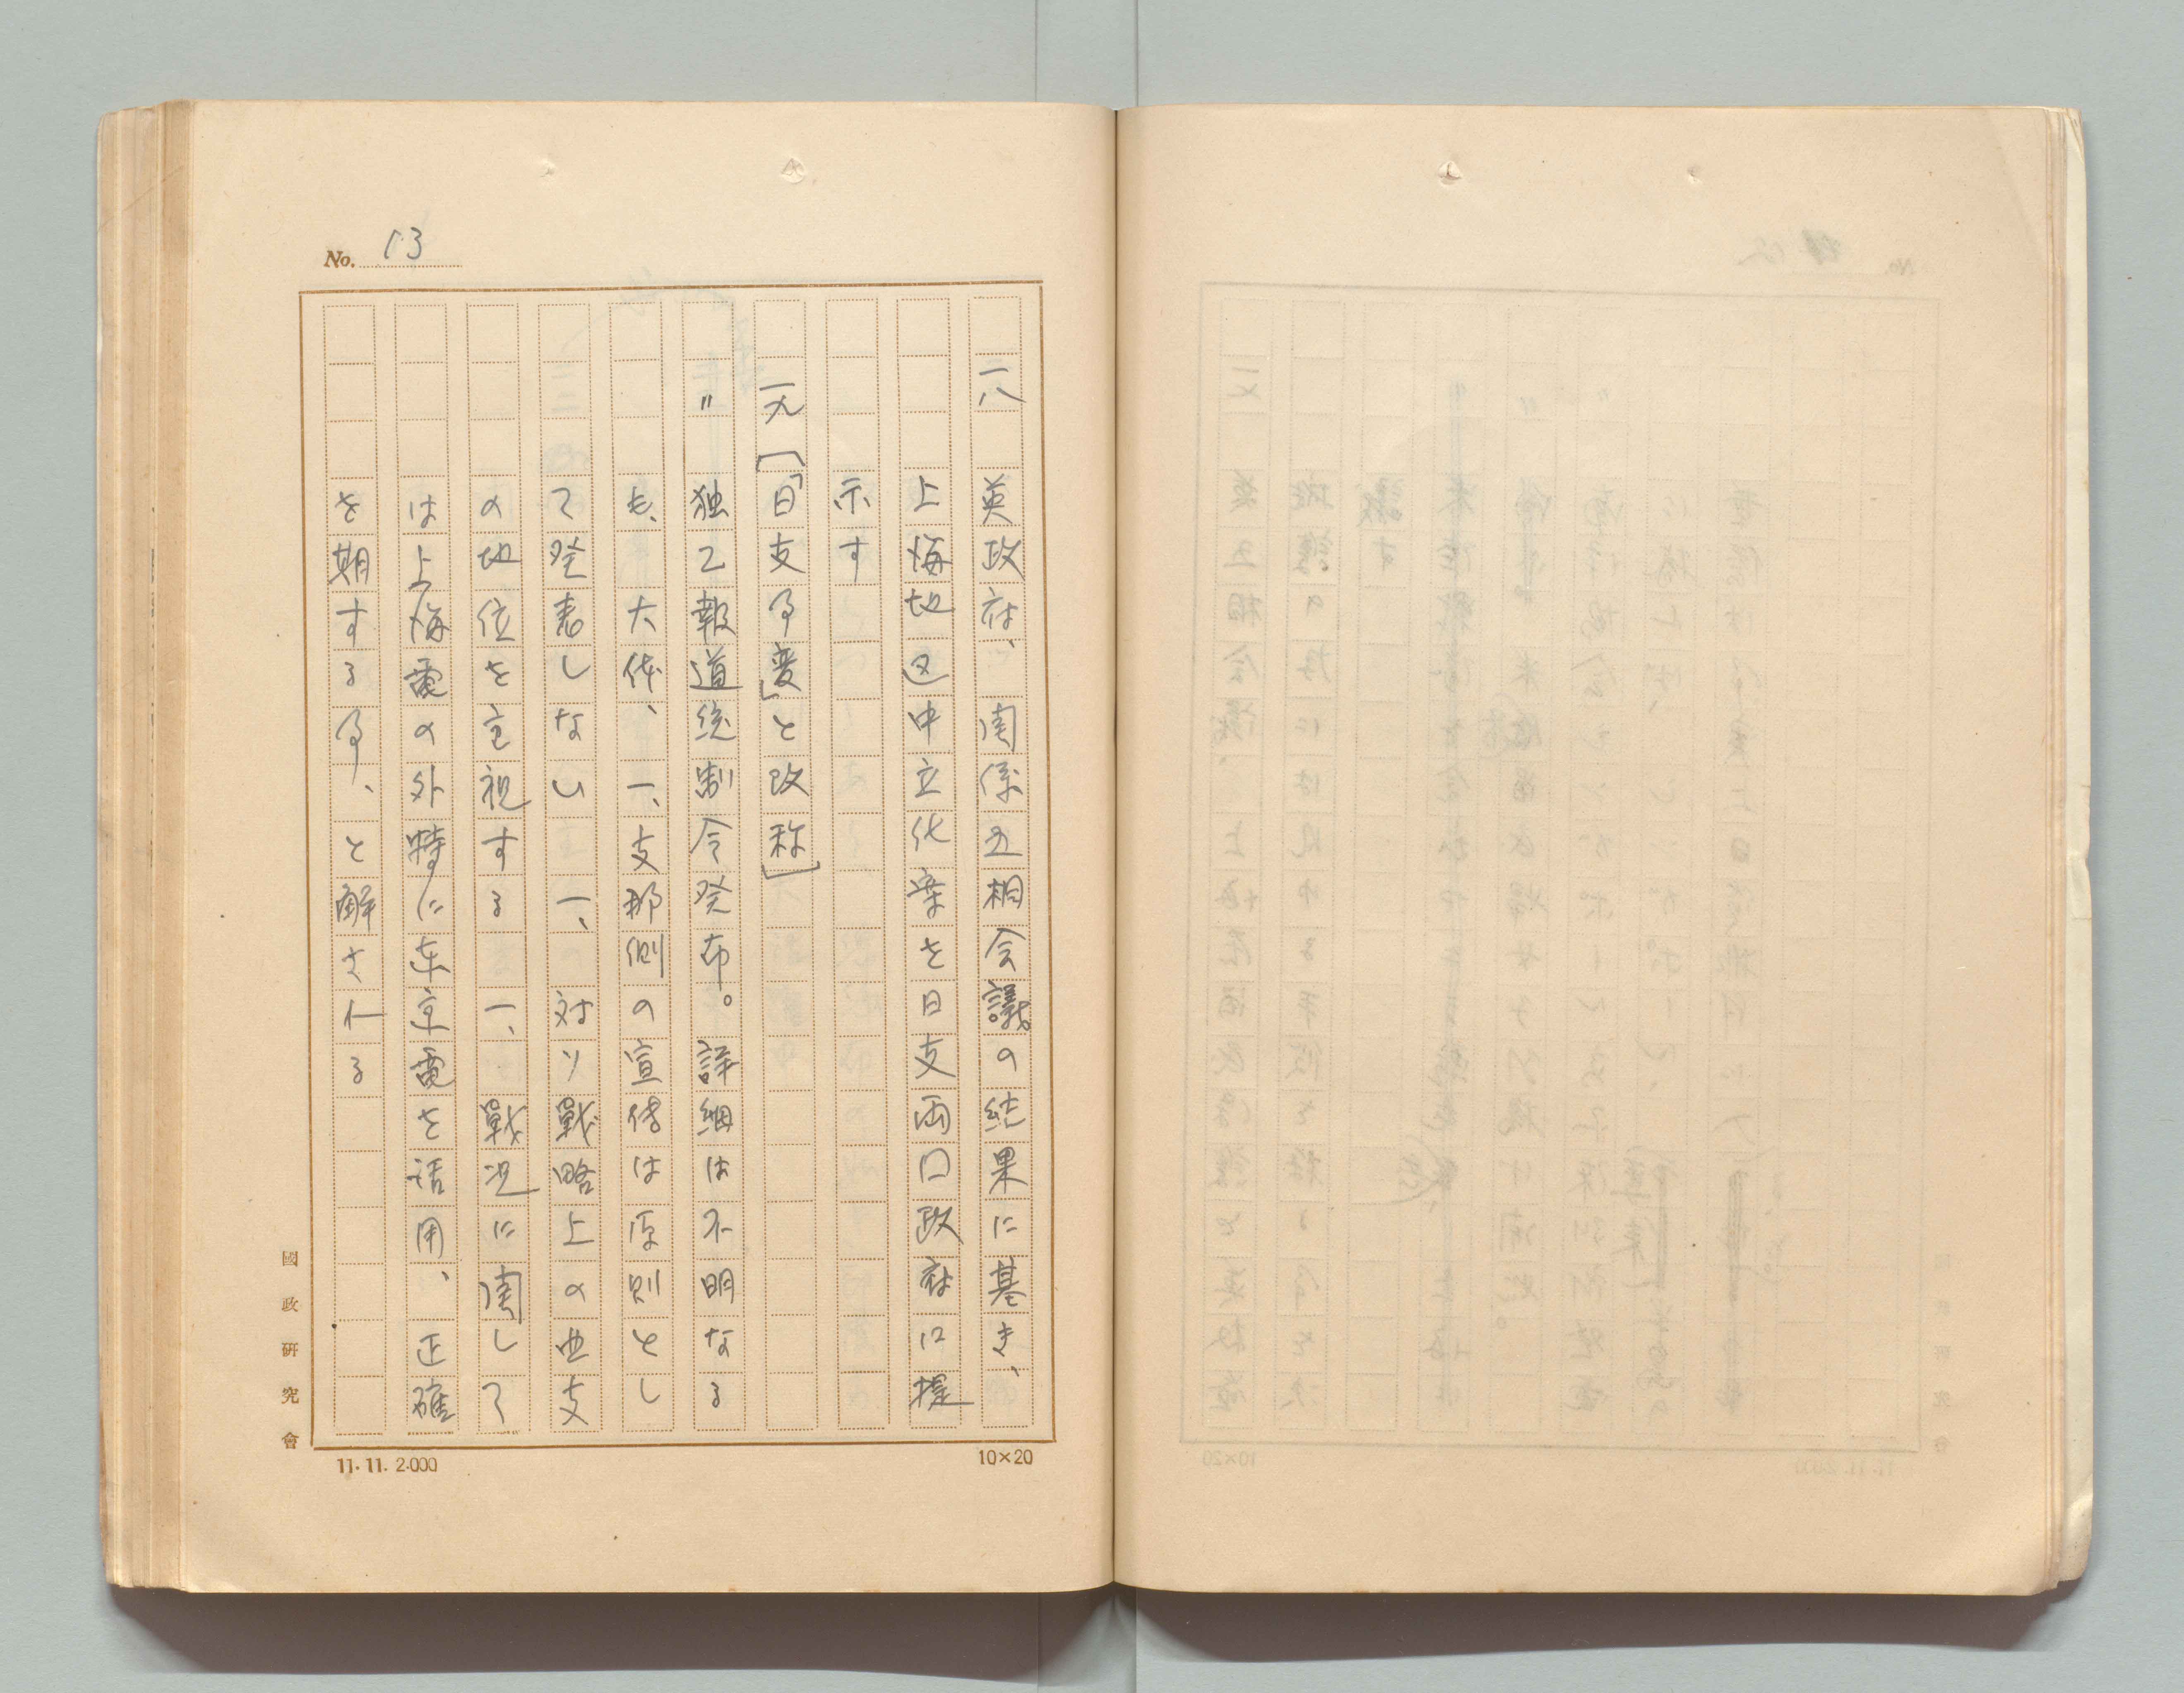 No. 13
一八 英政府、関係五相会議の結果に基き、
上海地区中立化案を日支両口政府に提
示す
一九 [「日支事変」と改称]
〃 独乙報道統制令発布。詳細は不明なる
も、大体、一、支那側の宣伝は原則とし
て発表しない 一、対ソ戦略上の亜支
の地位を重視する 一、戦況に関して
は上海電の外特に東京電を活用、正確
を期する事、と解される
國政研究會
11.11.2.000
10×20